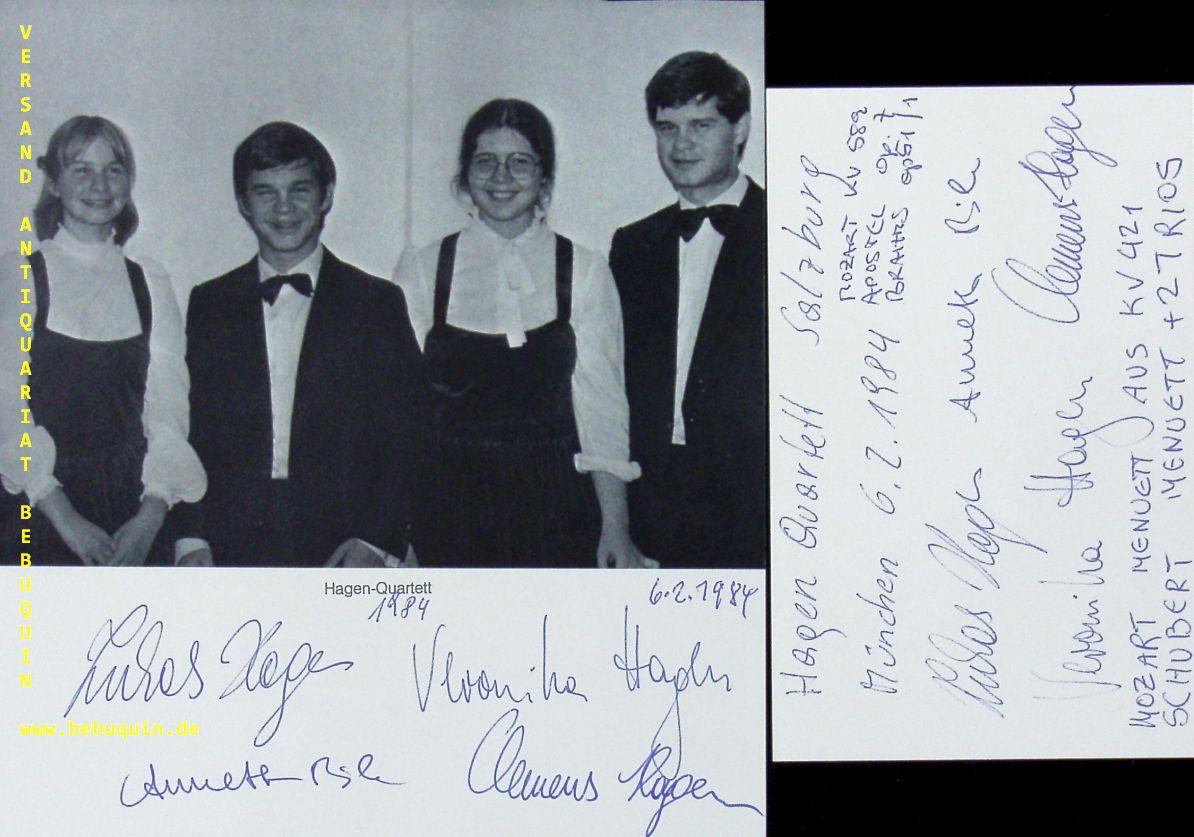 VERSAND ANTIQUARIAT BEBUQUIN
www.bebuquin.de
Hagen-Quartett
1984
6.2.1984
Lukas Hagen Veronika Hagen
Annette Bik Clemens Hagen
Hagen Quartett Salzburg
MOZART KV 589
APOSTEL op. 7
BRAHMS op 51/1
München 6.2.1984
Lukas Hagen Annette Bik
Veronika Hagen Clemens Hagen
MOZART MENUETT AUS KV 421
SCHUBERT MENUETT + 2 TRIOS